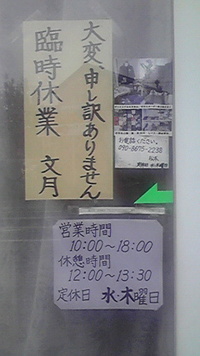 大変、申し訳ありません
臨時休業 文月
お電話ください。
営業時間
10:00~18:00
休憩時間
12:00~13:30
定休日 水・木曜日